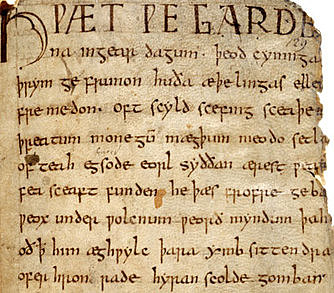 HǷÆT ǷE GARDE
na ingear dagum. þeod cyninga
þrym ge frunon huða æþelingas elle
fremedon. oft scyld scefing sceaþe
þreatum monegū mægþum meodo setl
of teah egsode eorl syððan ærest
fea sceaft funden he þæs frofre geba
ƿeox under ƿolcnum ƿeorð myndum þah
oð ꝥ him æghƿylc þara ymb sittendra
ofer hron rade hyran scolde gomban